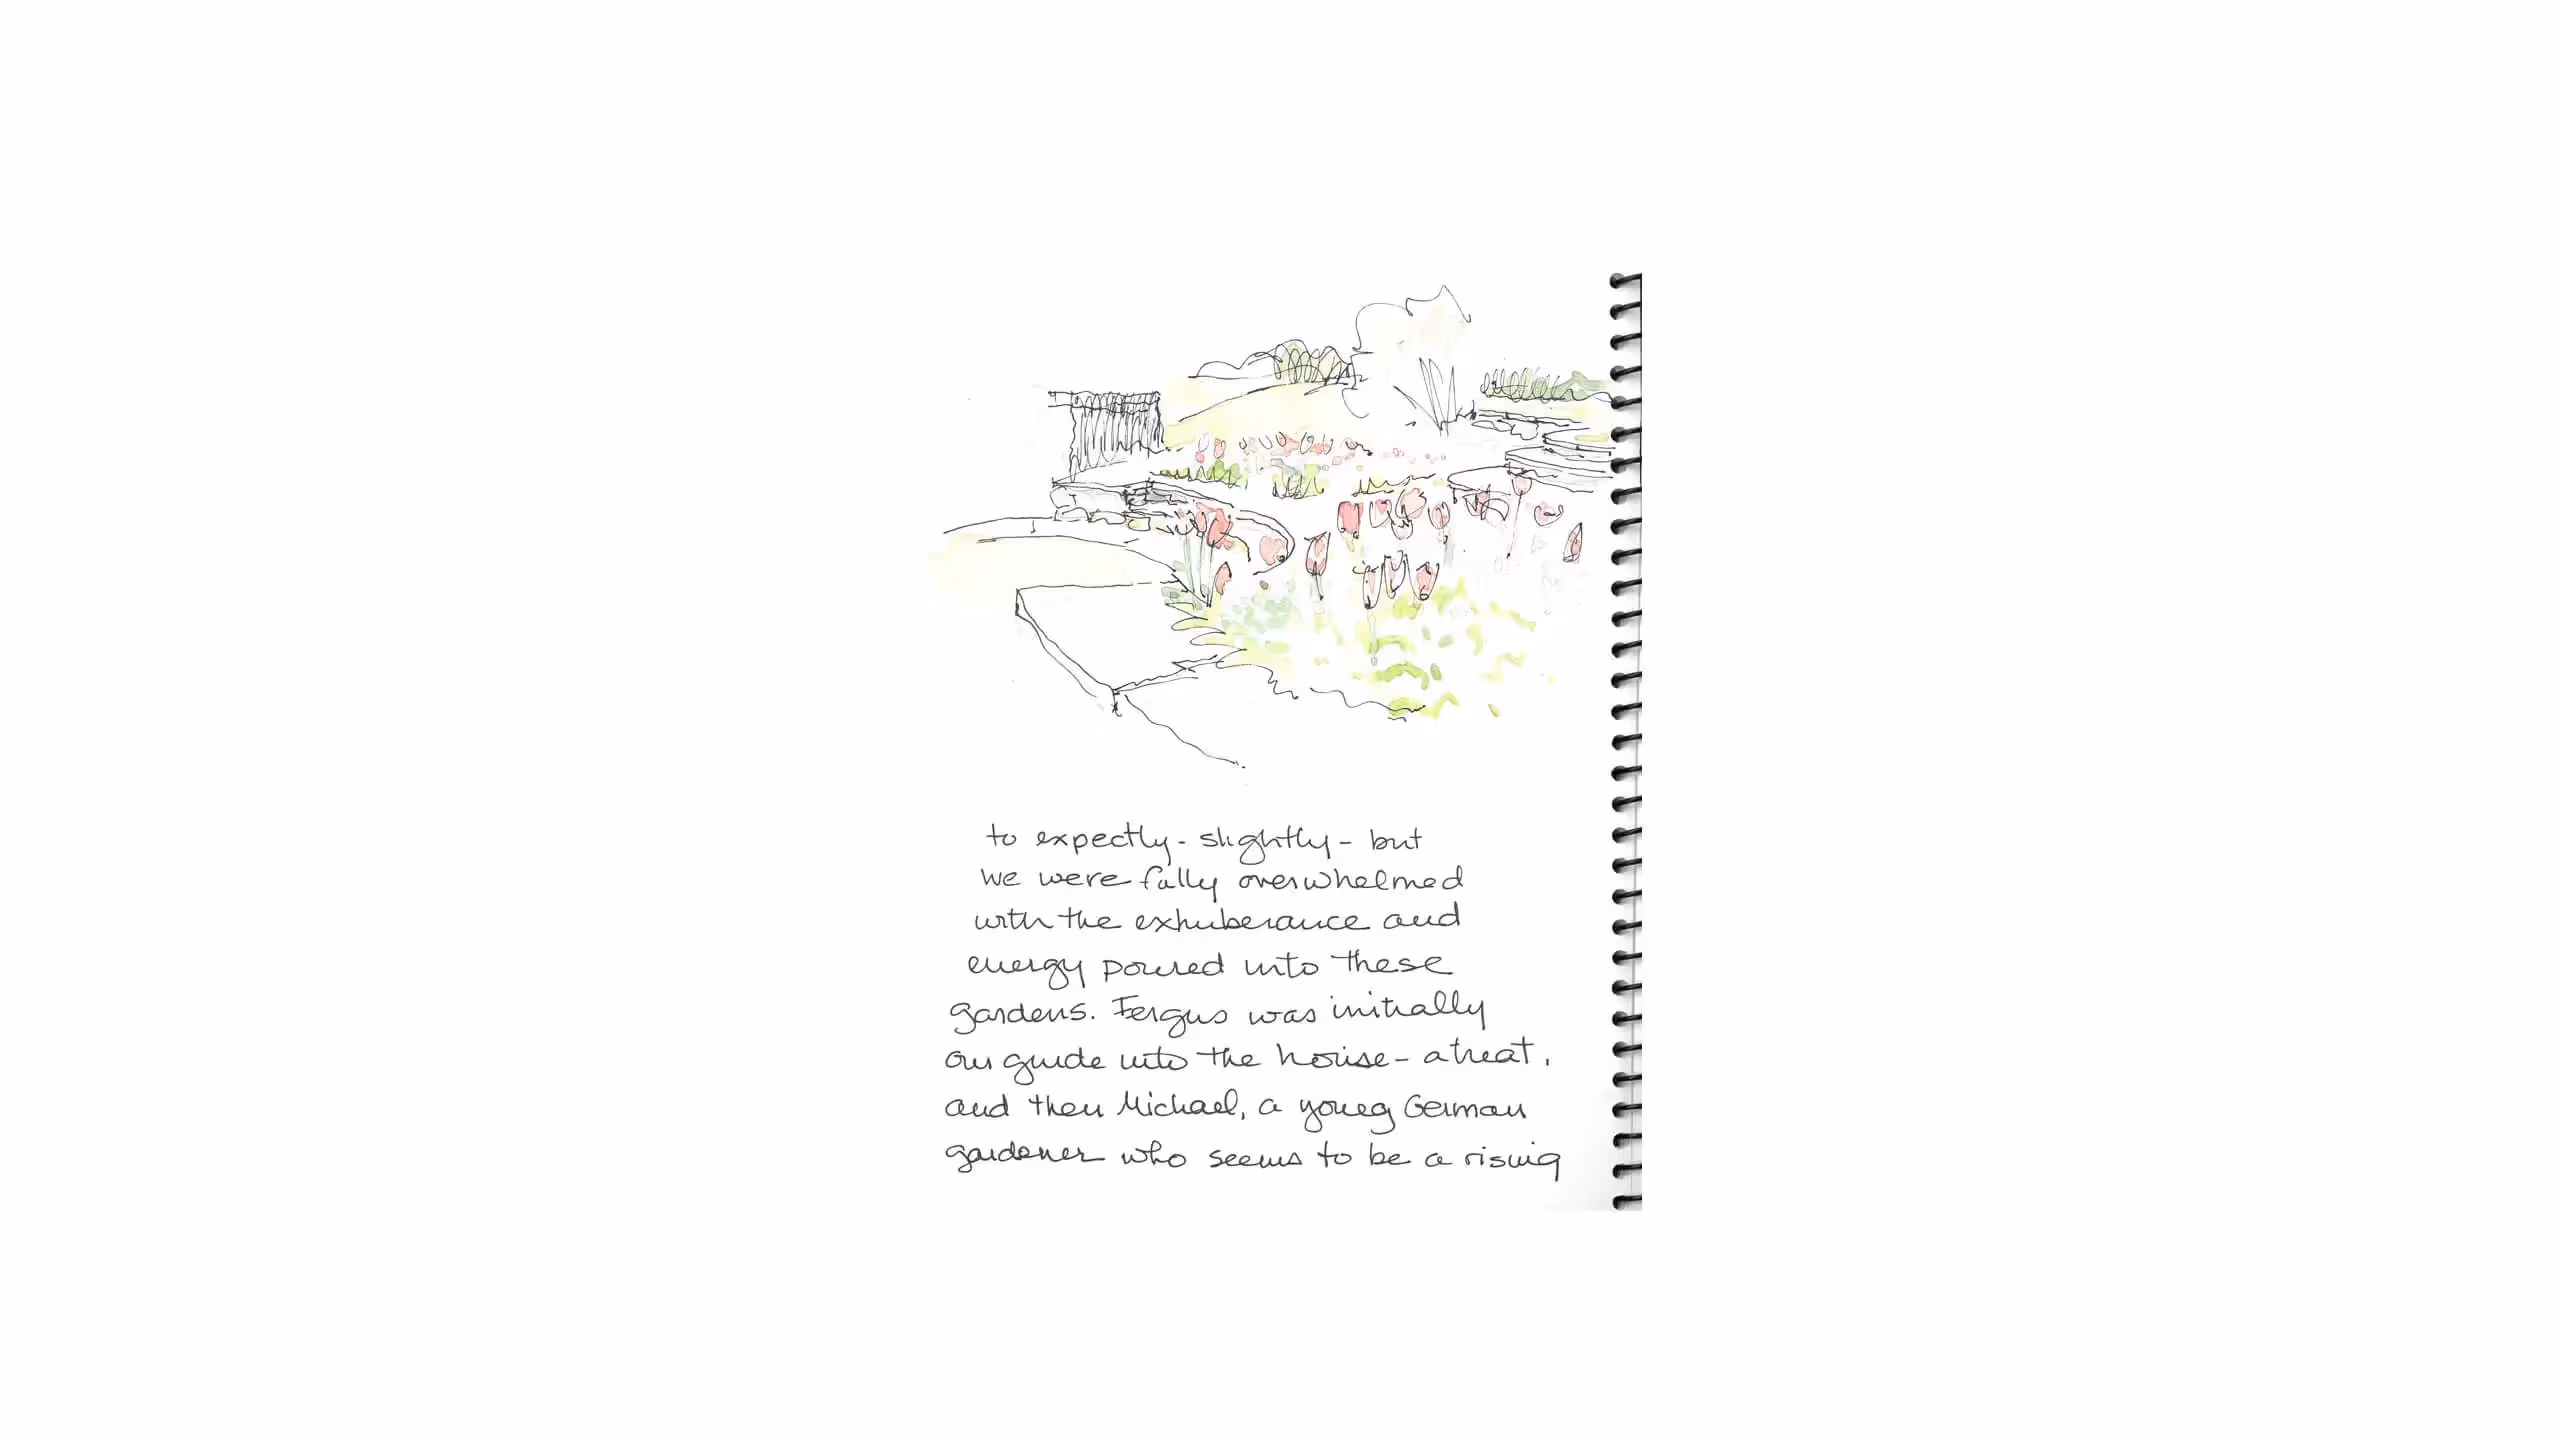 to expectly - slightly - but
we were fully overwhelmed
with the exhuberance and
energy poured into these
gardens. Fergus was initially
our guide into the house - a treat.
and then Michael, a young German
gardener who seems to be a rising